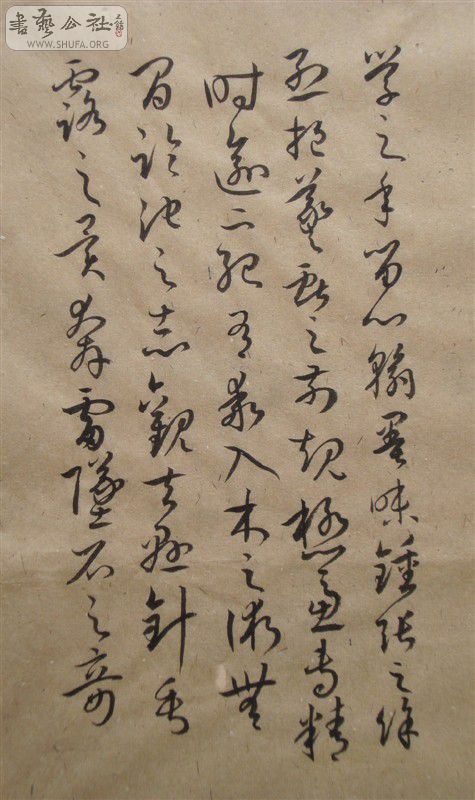 書藝公社
WWW.SHUFA.ORG
學之年留心翰墨味鍾張之餘
烈挹羲獻之前規極慮專精
時逾二紀有乖入木之術無
間臨池之志觀夫懸針垂
露之異奔雷墜石之奇